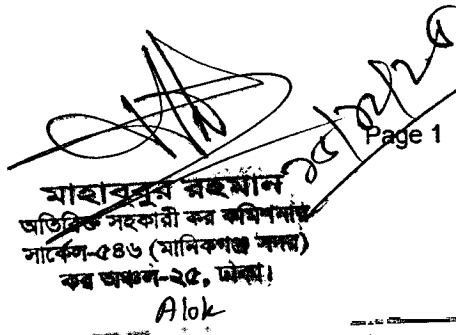 Page 1
মাহাবুবুর রহমান
অতিরিক্ত সহকারী কর কমিশনার
সার্কেল-৫৪৬ (মানিকগঞ্জ সদর)
কর অঞ্চল-২৫, ঢাকা।
Alok